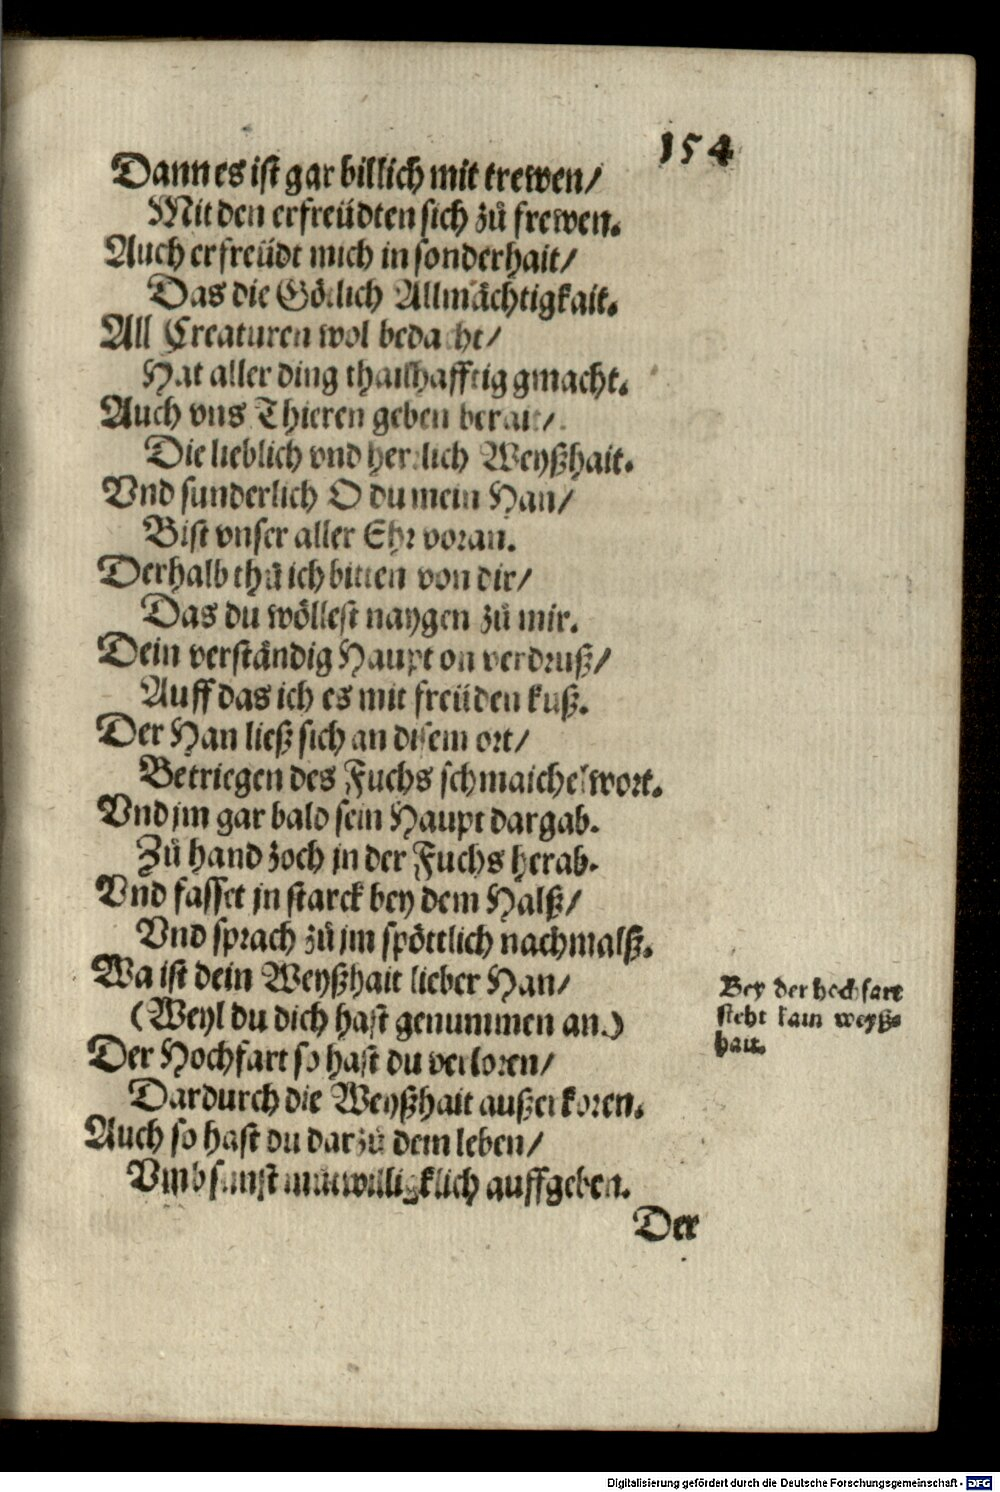 154
Dann es ist gar billich mit trewen/
Mit den erfreüdten sich zů frewen.
Auch erfreüdt mich in sonderhait/
Das die Götlich Allmächtigkait.
All Creaturen wol bedacht/
Hat aller ding thailhafftig gmacht.
Auch vns Thieren geben berait/
Die lieblich vnd herrlich Weyßhait.
Vnd sunderlich O du mein Han/
Bist vnser aller Ehr voran.
Derhalb thů ich bitten von dir/
Das du wöllest naygen zů mir.
Dein verständig Haupt on verdruß/
Auff das ich es mit freüden kuß.
Der Han ließ sich an disem ort/
Betriegen des Fuchs schmaichelwort.
Vnd jm gar bald sein Haupt dargab.
Zů hand zoch jn der Fuchs herab.
Vnd fasset jn starck bey dem Halß/
Vnd sprach zů jm spöttlich nachmalß.
Wa ist dein Weyßhait lieber Han/
(Weyl du dich hast genummen an.)
Der Hochfart so hast du verloren/
Dardurch die Weyßhait außerkoren.
Auch so hast du darzů dem leben/
Vmb sunst můtwilligklich auffgeben.
Bey der hochfart
steht kain weyß-
hait.
Der
Digitalisierung gefördert durch die Deutsche Forschungsgemeinschaft - DFG